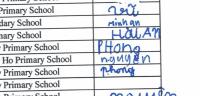 Primary School
dary School minh an
nary School HẢI AN
Primary School PHONG
Ho Primary School nguyễn
Primary School phong
Primary School nguyễn